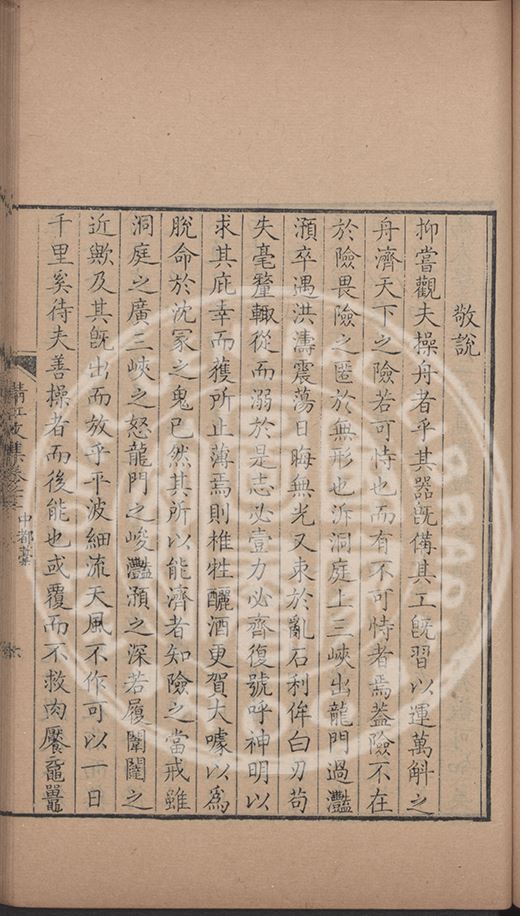 敬說
抑嘗觀夫操舟者乎其器旣備其工旣習以運萬斛之
舟濟天下之險若可恃也而有不可恃者焉蓋險不在
於險畏險之匿於無形也泝洞庭上三峽出龍門過灩
澦卒遇洪濤震蕩日晦無光又束於亂石利侔白刃苟
失毫釐輙從而溺於是志必壹力必齊復號呼神明以
求其庇幸而獲所止薄焉則椎牲釃酒更賀大噱以爲
脫命於沈冥之鬼已然其所以能濟者知險之當戒雖
洞庭之廣三峽之怒龍門之峻灩澦之深若履闤闠之
近歟及其旣出而放乎平波細流天風不作可以一日
千里奚待夫善操者而後能也或覆而不救肉饜黿鼉
清江文集卷之二十三 中都藁